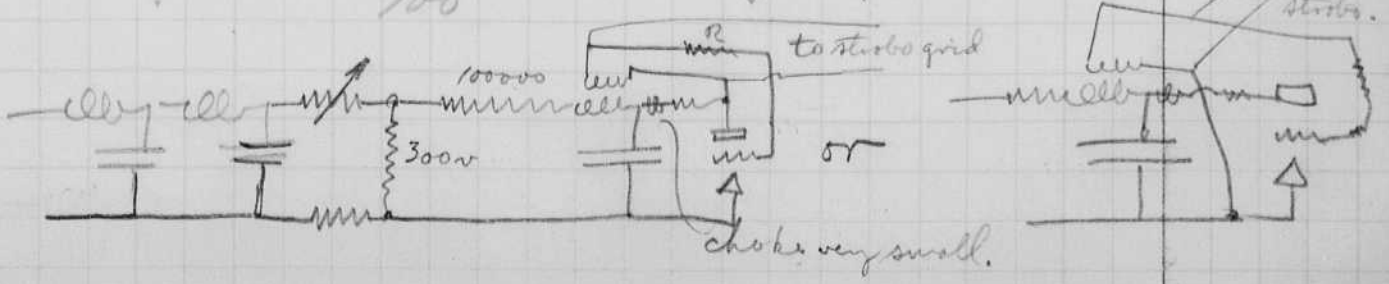 100
strobo.
R
to strobo grid
100000
300v
or
choke very small.